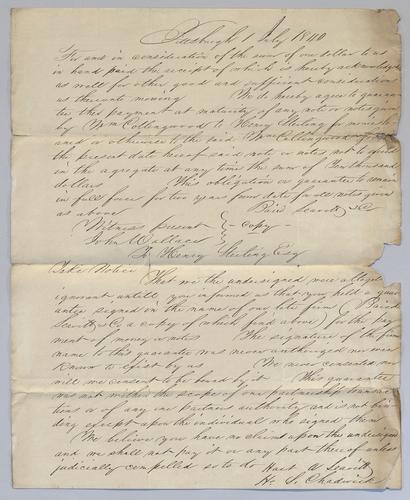 Pittsburgh 1 July 1840
For and in consideration of the sum of one dollar to us
in hand paid the receipt of which is hereby acknowledged
as well for other good and sufficient considerations
us thereunto moving We do hereby agree to guaran-
tee the payment at maturity of any note or notes given
by Wm Collingwood to Henry Sterling for moneys
and or otherwise to the said Wm Collingwood
the present date hereof said note or notes not to exceed
in the aggregate at any time the sum of Ten thousand
dollars This obligation or guarantee to remain
in full force for two years from date for all notes given
as above Baird Leavitt & Co
Witness present } - copy -
John Wallace }
To Henry Sterling Esq
Take Notice
That we the undersigned were altogether
ignorant untill you informed us that you held a guar-
antee signed in the name of our late firm (Baird
Leavitt & Co a copy of which find above) for the pay-
ment of money or notes The signature of the firm
name to this guarantee was never authorized nor even
known to exist by us We never consented nor
will we consent to be bound by it This guarantee
was not within the scope of our partnership transac-
tions or of any one Partners authority and is not bin-
ding except upon the individual who signed them
We believe you have no claim upon the undersigned
and we shall not pay it or any part thereof unless
judicially compelled so to do
A Leavitt
H. S. Chadwick